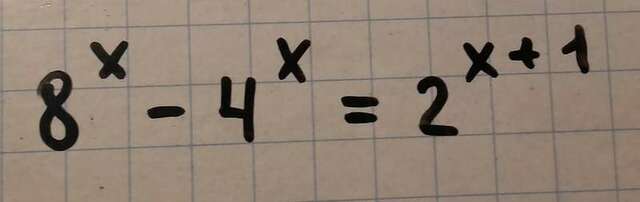 8^x - 4^x = 2^{x+1}